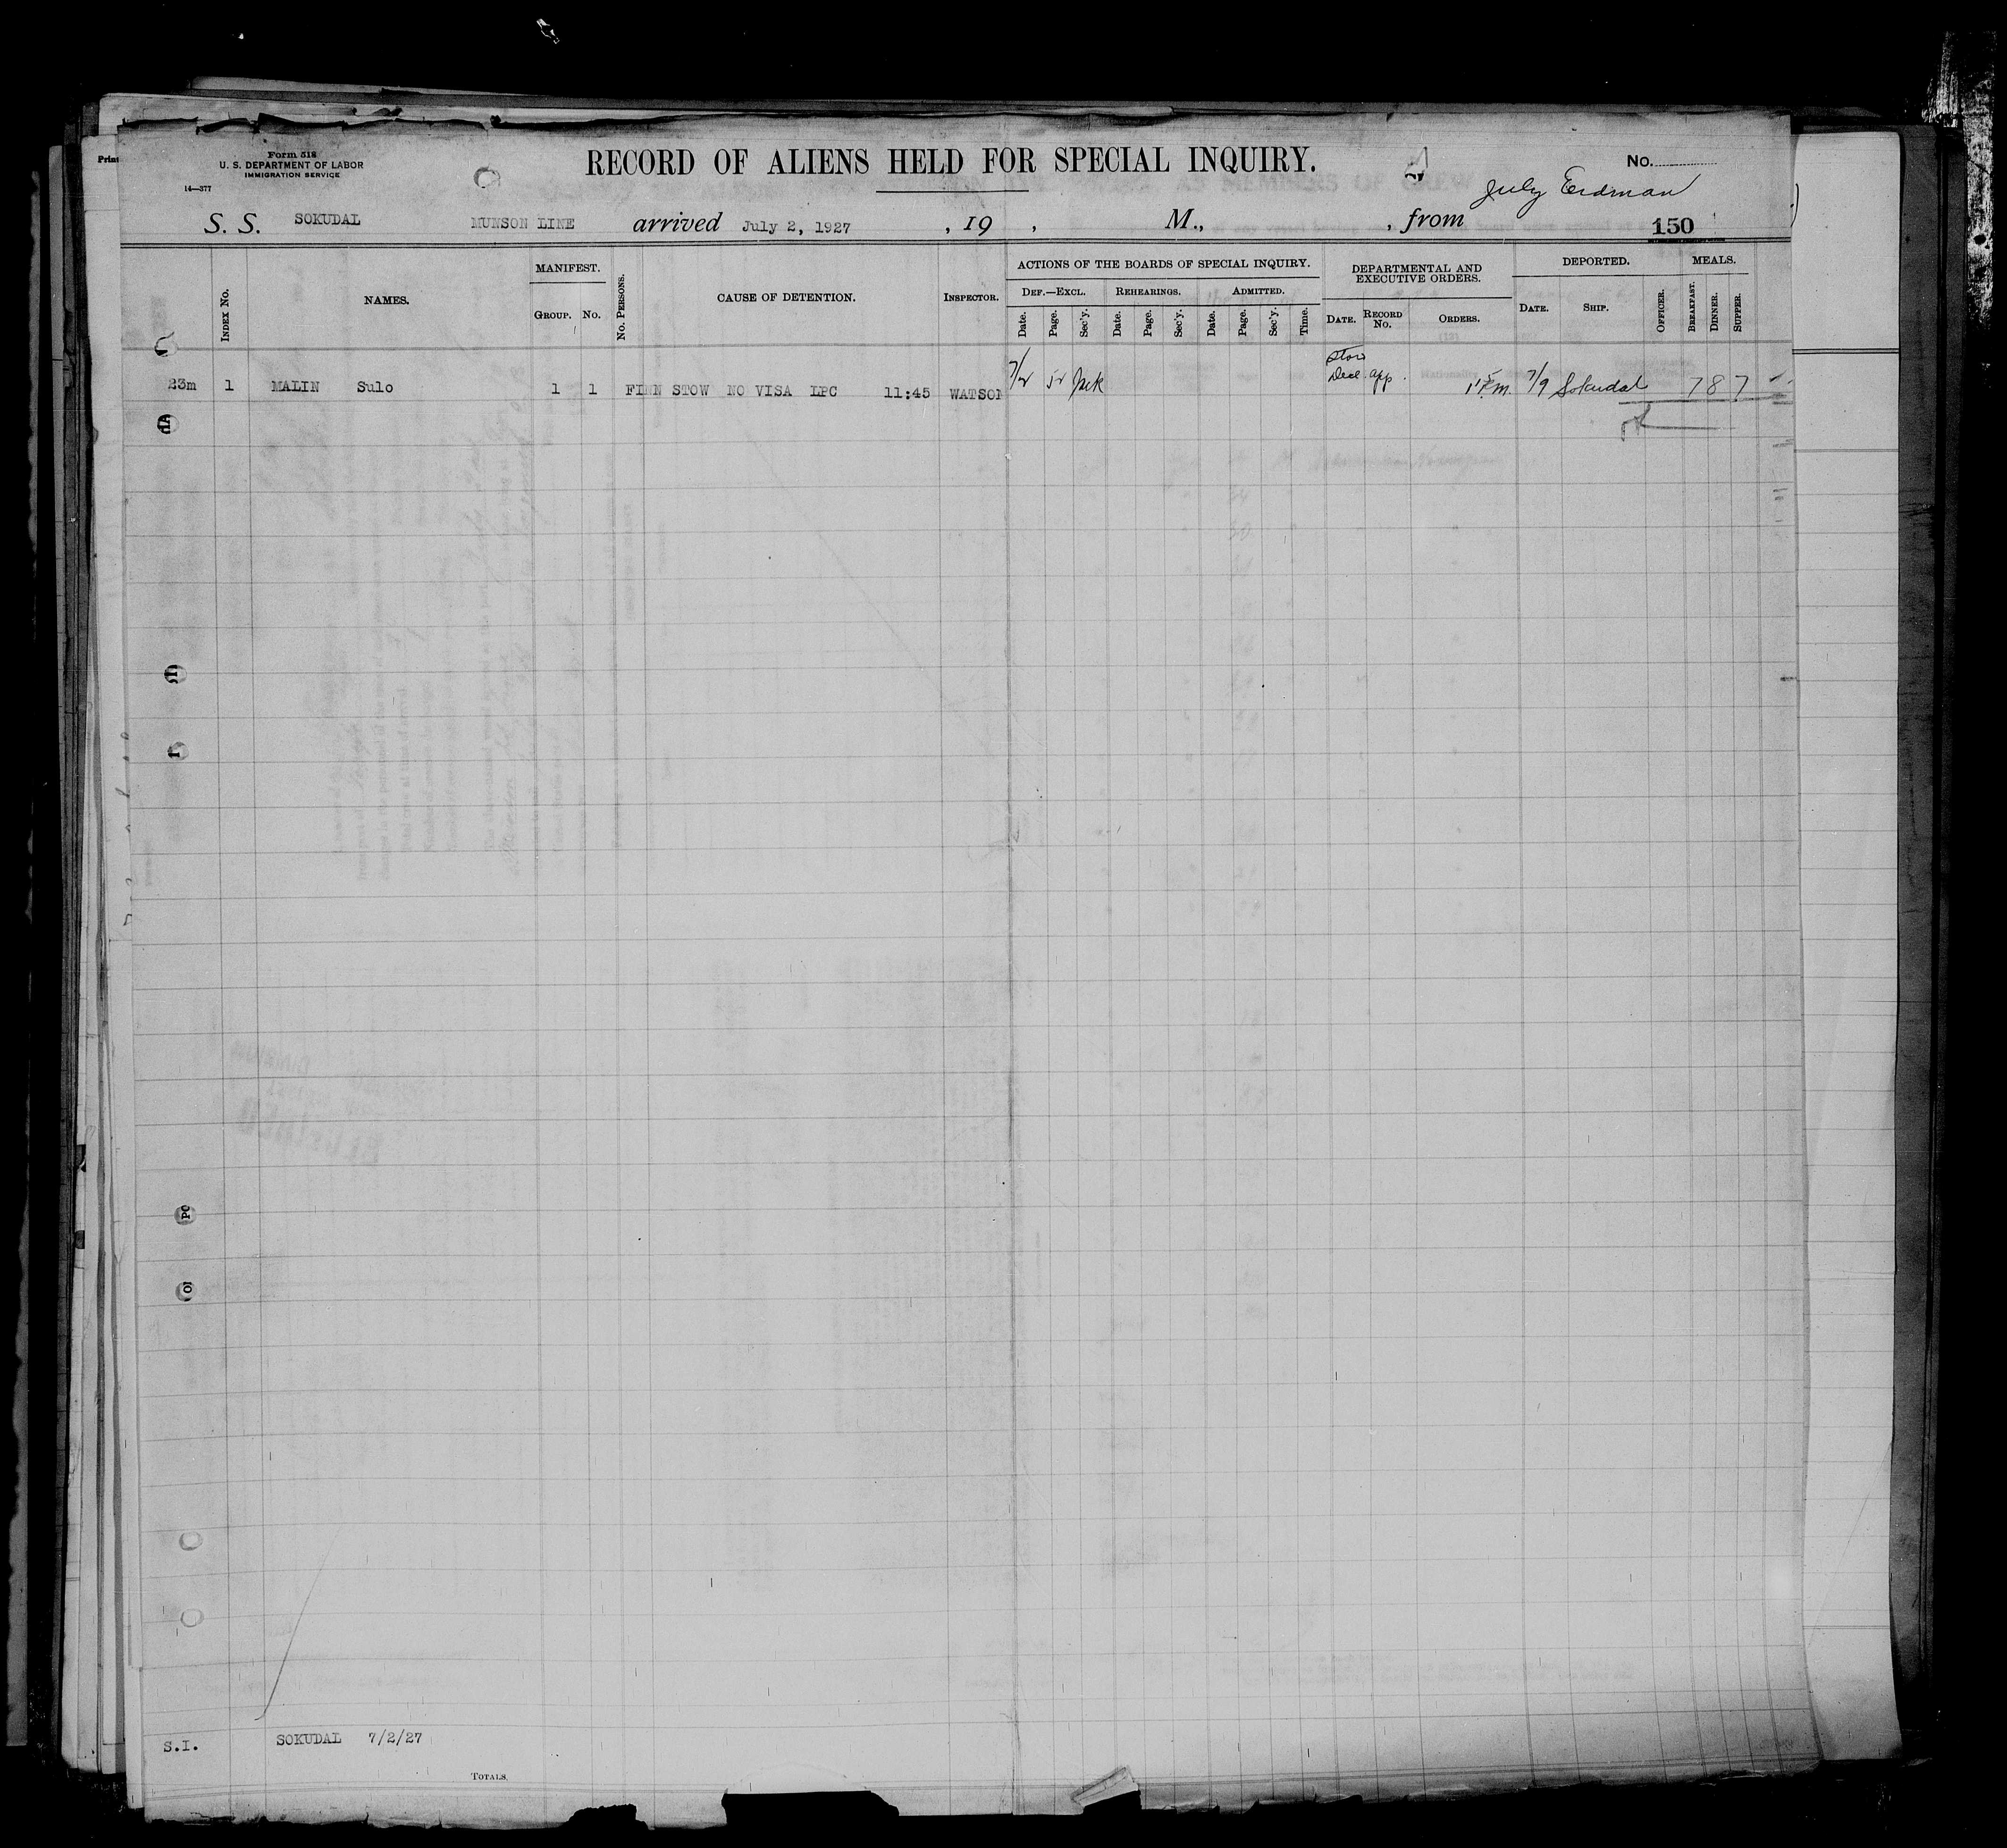 Form 518
U. S. DEPARTMENT OF LABOR
IMMIGRATION SERVICE
14—377
RECORD OF ALIENS HELD FOR SPECIAL INQUIRY.
No.
July Erdman
S. S. SOKUDAL MUNSON LINE arrived July 2, 1927 , 19 , M., , from
150
INDEX No. NAMES. MANIFEST. GROUP. No. No. PERSONS. CAUSE OF DETENTION. INSPECTOR. ACTIONS OF THE BOARDS OF SPECIAL INQUIRY. DEPARTMENTAL AND EXECUTIVE ORDERS. DEPORTED. MEALS.
DEF.—EXCL. REHEARINGS. ADMITTED.
Date. Page. Sec'y. Date. Page. Sec'y. Date. Page. Sec'y. Time. DATE. RECORD No. ORDERS. DATE. SHIP. OFFICER. BREAKFAST. DINNER. SUPPER.
23m 1 MALIN Sulo 1 1 FINN STOW NO VISA LPC 11:45 WATSON 7/2 52 Stow Decl. app. 7/9 Sokudal 7 8 7
S.I. SOKUDAL 7/2/27
TOTALS,